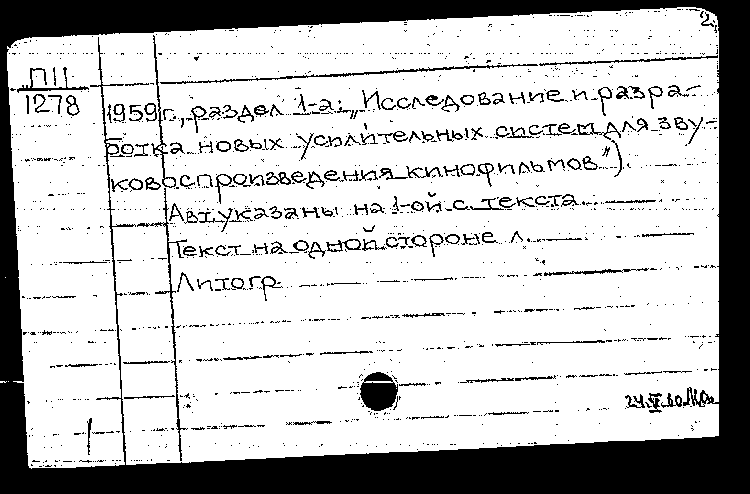 2.
П11
1278
1959 г., раздел 1-а: „Исследование и разра-
ботка новых усилительных систем для зву-
ковоспроизведения кинофильмов").
Авт. указаны на 1-ой с. текста.
Текст на одной стороне л.
Литогр
24.V.60.